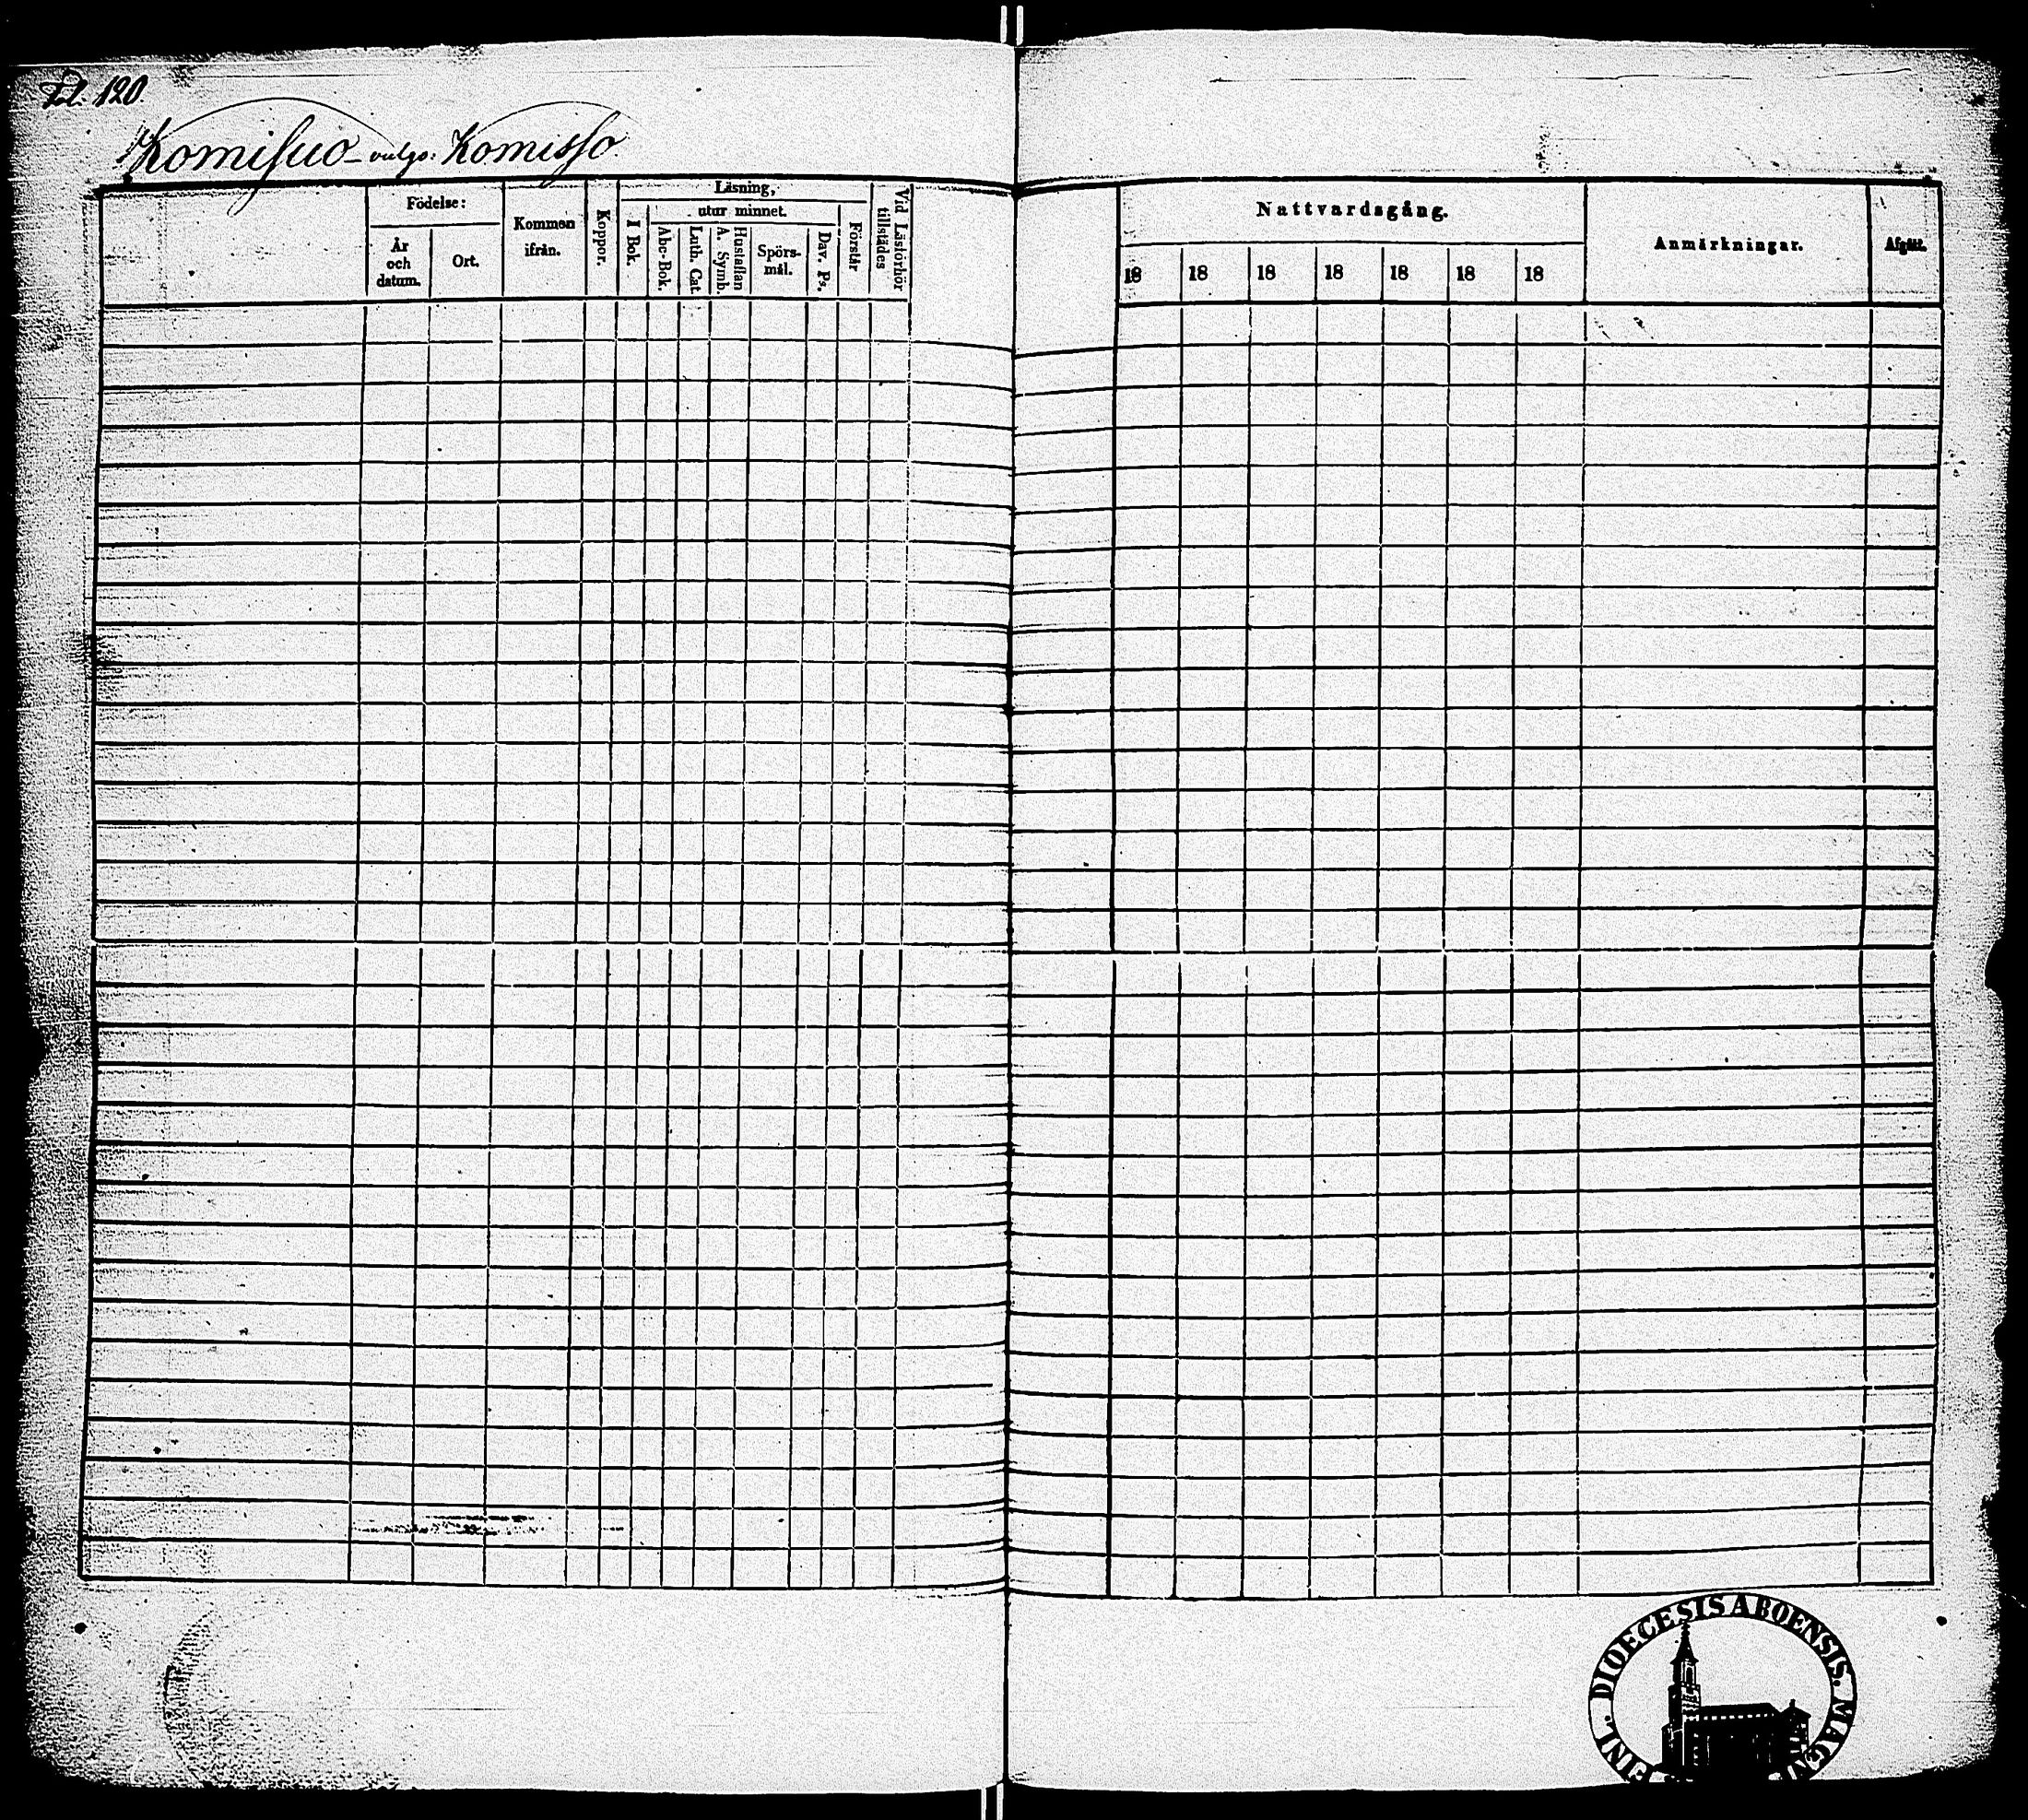 Fol. 120.
Komisuo - vulgo: Komisso.
Födelse:
År och datum.
Ort.
Kommen ifrån.
Koppor.
Läsning,
I Bok.
utur minnet.
Abc-Bok.
Luth. Cat.
A. Symb. Hustaflan
Spörs-mål.
Dav. Ps.
Förstår
Vid Läsförhör tillstädes
Nattvardsgång.
18 18 18 18 18 18 18
Anmärkningar.
Afgått.
DIOECESIS ABOENSIS. MAGNI
FINL.